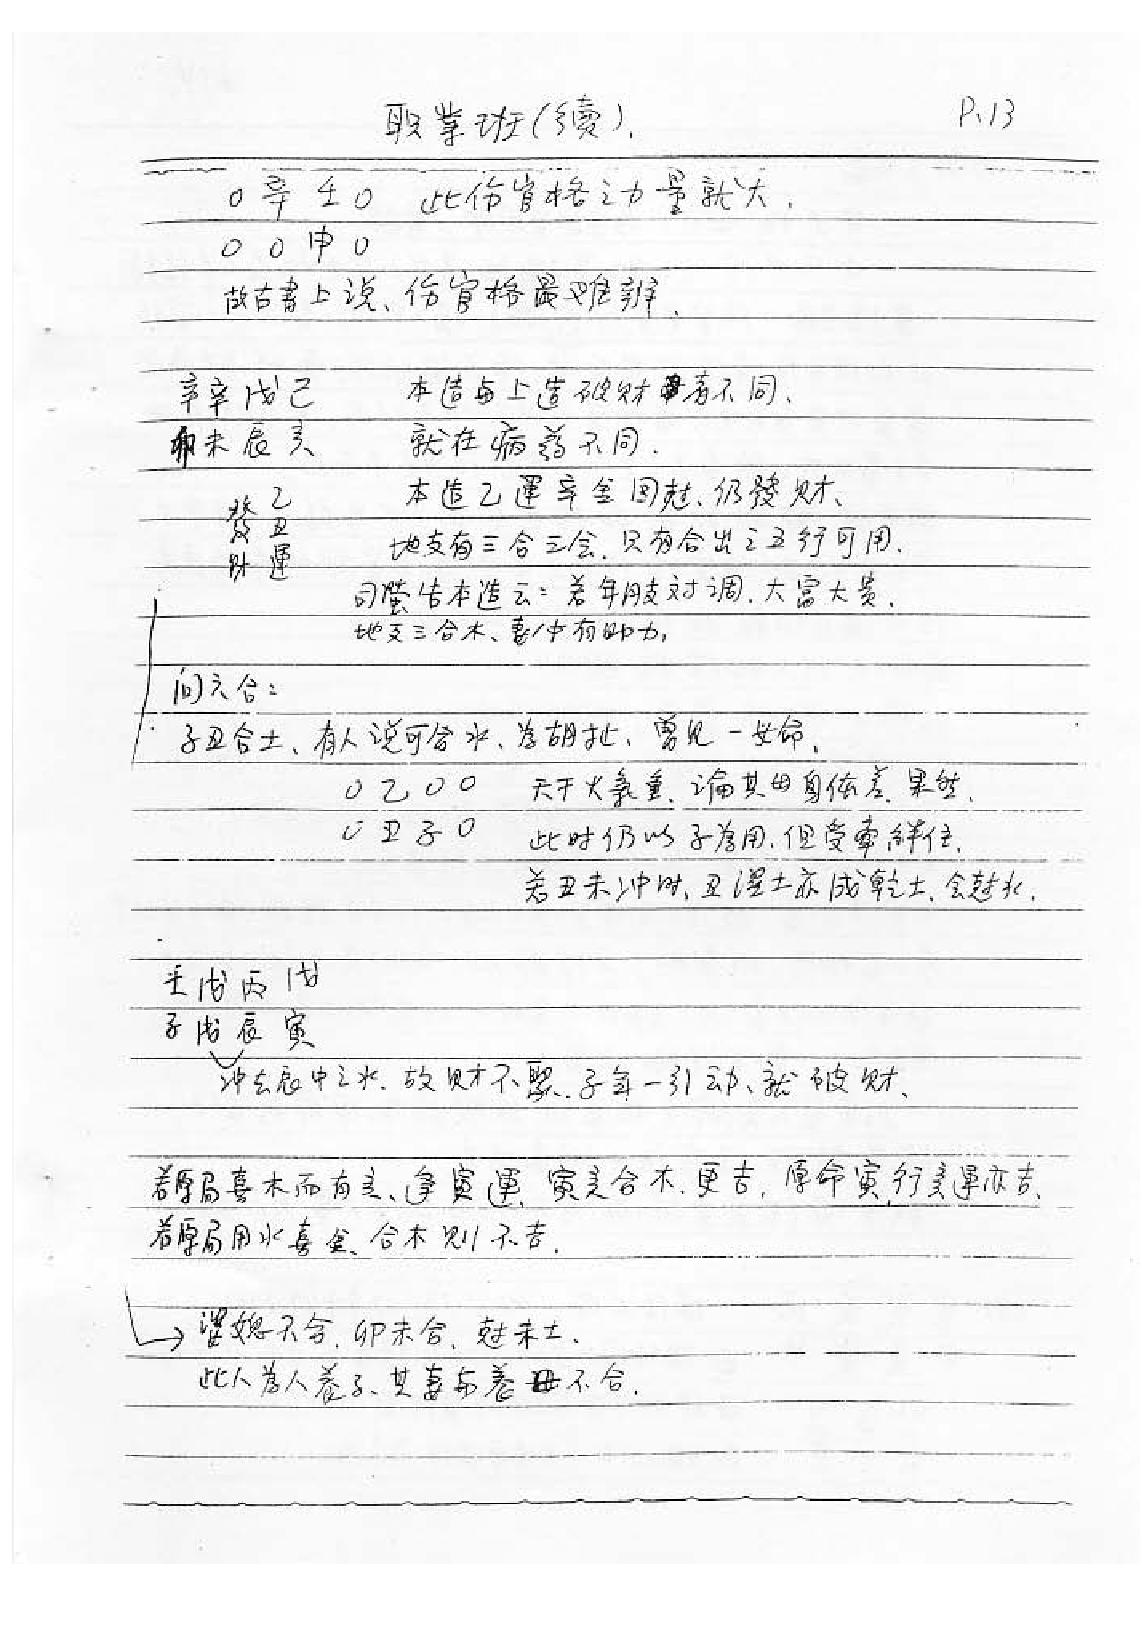 职業班(續). P.13
0 辛 壬 0 此伤官格之力量就大.
0 0 申 0
故古書上说、伤官格最难辨.
辛辛戊己 本造与上造破财者不同、
卯未辰亥 就在病药不同.
乙丑運 發财 本造乙運辛金回尅、仍發财、
地支有三合三会、只有合出之五行可用.
司螢告本造云：若年月支对调、大富大贵、
地支三合木、妻/中有助力,
问六合：
子丑合土、有人说可合水、为胡扯、曾见一女命、
0 乙 0 0 天干火氣重、论其母身体差、果然、
0 丑 子 0 此时仍以子为用、但受牵绊住、
若丑未冲时、丑湿土亦成乾土、会尅水.
壬戊丙戊
子戌辰寅
冲去辰中之水、故财不聚、子年一引动、就破财、
若原局喜木而有亥、逢寅運、寅亥合木、更吉, 原命寅,行亥運亦吉、
若原局用水喜金、合木则不吉.
婆媳不合、卯未合、尅未土、
此人为人养子、其妻与养母不合.